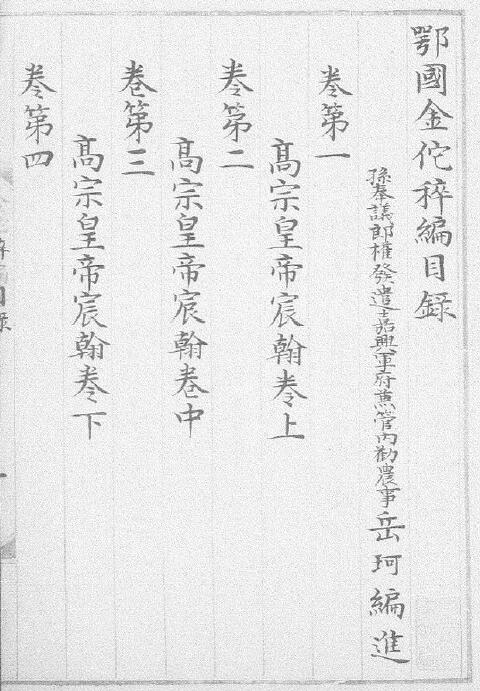 鄂國金佗稡編目録
孫奉議郎權發遣嘉興軍府兼管内勸農事岳珂編進
卷第一
髙宗皇帝宸翰卷上
卷第二
髙宗皇帝宸翰卷中
卷第三
髙宗皇帝宸翰卷下
卷第四